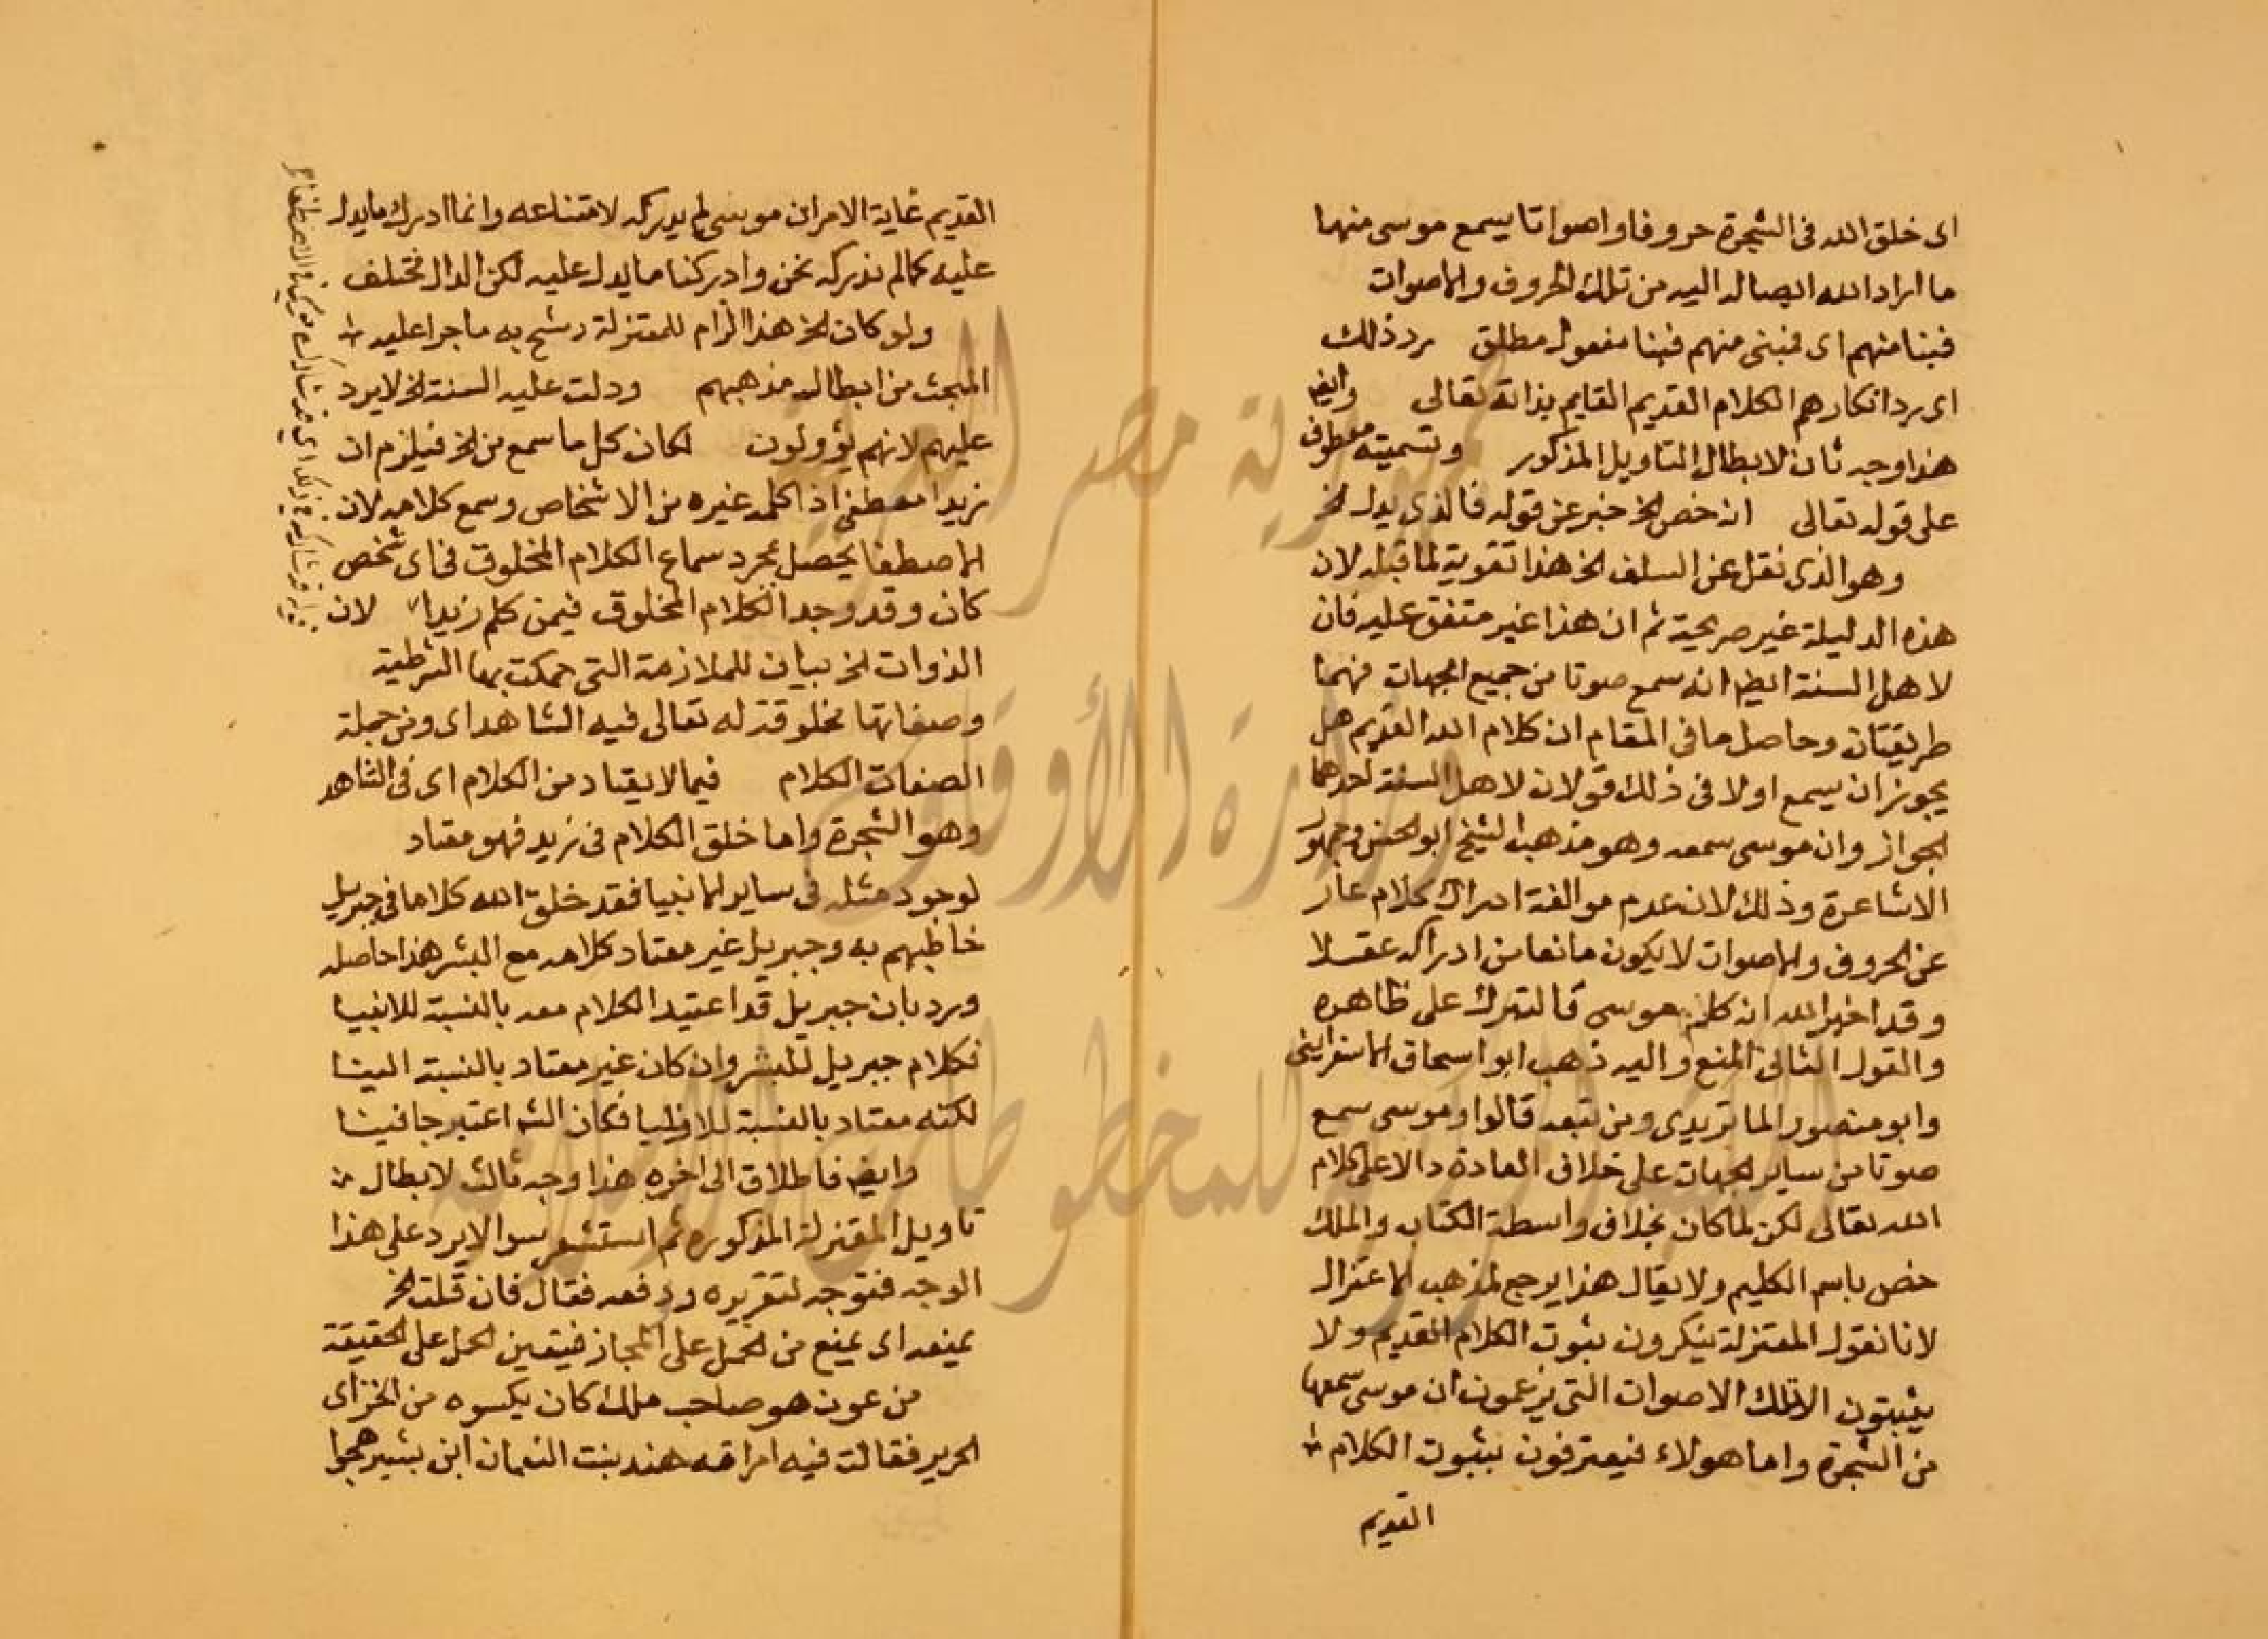 اى خلق الله فى الشجرة حروفا واصواتا يسمع موسى منها
ما اراد الله ايصاله اليه من تلك الحروف والاصوات
فبنا منهم اى فبنى منهم فبنا مفعول مطلق يرد ذلك
اى يرد انكارهم الكلام القديم القايم بذاته تعالى وايض
هذا وجه ثان لابطال التاويل المذكور وتسميته معطوف
على قوله تعالى انه خص الخ خبر عن قوله فالذى يدل الخ
وهو الذى نقل عن السلف الخ هذا تقوية لما قبله لان
هذه الدليلة غير صريحة ثم ان هذا غير متفق عليه فان
لاهل السنة ايض انه سمع صوتا من جميع الجهات فهما
طريقتان وحاصل ما فى المقام ان كلام الله القديم هل
يجوز ان يسمع اولا فى ذلك قولان لاهل السنة احدهما
الجواز وان موسى سمعه وهو مذهب الشيخ ابو الحسن وجمهور
الاشاعرة وذلك لان عدم موالفة ادراك كلام عار
عن الحروف والاصوات لا يكون مانعا من ادراكه عقلا
وقد اخبر الله انه كلم موسى فالتدرك على ظاهره
والقول الثانى المنع واليه ذهب ابو اسحاق الاسفراينى
وابو منصور الماتريدى ومن تبعه قالوا وموسى سمع
صوتا من ساير الجهات على خلاف العادة دالا على كلام
الله تعالى لكن لما كان بخلاف واسطة الكتاب والملك
خص باسم الكليم ولا يقال هذا يرجع لمذهب الاعتزال
لانا نقول المعتزلة ينكرون ثبوت الكلام القديم ولا
يثبتون الا تلك الاصوات التى يزعمون ان موسى سمعها
من الشجرة واما هولاء فيعترفون بثبوت الكلام
القديم
القديم غاية الامر ان موسى لم يدركه لامتناعه وانما ادرك ما يدل
عليه كما لم ندركه نحن وادركنا ما يدل عليه لكن الدال مختلف
ولو كان الخ هذا الزام للمعتزلة رشح به ما جرا عليه
المبحث من ابطال مذهبهم ودلت عليه السنة الخ لا يرد
عليهم لانهم يؤولون لكان كل ما سمع من الخ فيلزم ان
زيدا مصطفى اذا كلمه غيره من الاشخاص وسمع كلامه لان
الاصطفا يحصل بمجرد سماع الكلام المخلوق فى اى شخص
كان وقد وجد الكلام المخلوق فيمن كلم زيدا لان
الذوات الخ بيان للملازمة التى حكمت بها الشرطية
وصفاتها مخلوقة له تعالى فيه الشاهد اى ومن جملة
الصفات الكلام فيما لا يعتاد من الكلام اى فى الشاهد
وهو الشجرة واما خلق الكلام فى زيد فهو معتاد
لوجود مثله فى ساير الانبيا فقد خلق الله كلاما فى جبريل
خاطبهم به وجبريل غير معتاد كلامه مع البشر هذا حاصله
ورد بان جبريل قد اعتيد الكلام معه بالنسبة للانبيا
فكلام جبريل للبشر وان كان غير معتاد بالنسبة الينا
لكنه معتاد بالنسبة للانبيا فكان اعتبر جا فينا
وايض فاطلاق الى اخره هذا وجه ثالث لابطال
تاويل المعتزلة المذكوره ثم استشعر سوالا يرد على هذا
الوجه فتوجه لتقريره ودفعه فقال فان قلت الخ
يمنعه اى يمنع من الحمل على المجاز فيتعين الحمل على الحقيقة
من عوف هو صاحب ملك كان يكسوه من الخز اى
الحرير فقالت فيه امراته هند بنت النعمان ابن بشير هجوا
جمهورية مصر العربية
وزارة الأوقاف
للمخطوطات الإسلامية